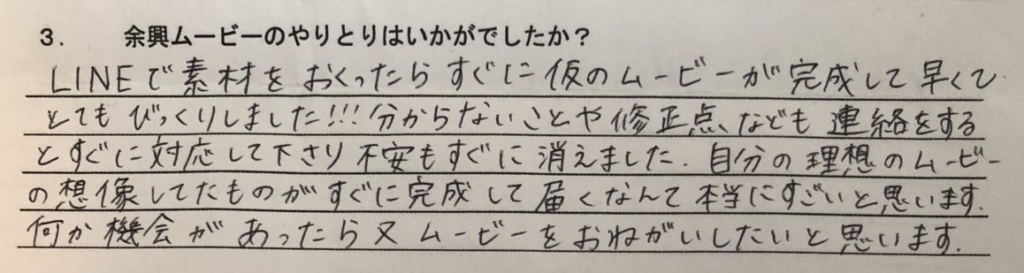 3. 余興ムービーのやりとりはいかがでしたか?
LINEで素材をおくったらすぐに仮のムービーが完成して早くて
とてもびっくりしました!!!分からないことや修正点、なども連絡をする
とすぐに対応して下さり不安もすぐに消えました。自分の理想のムービー
の想像してたものがすぐに完成して届くなんて本当にすごいと思います。
何か機会があったら又ムービーをおねがいしたいと思います。